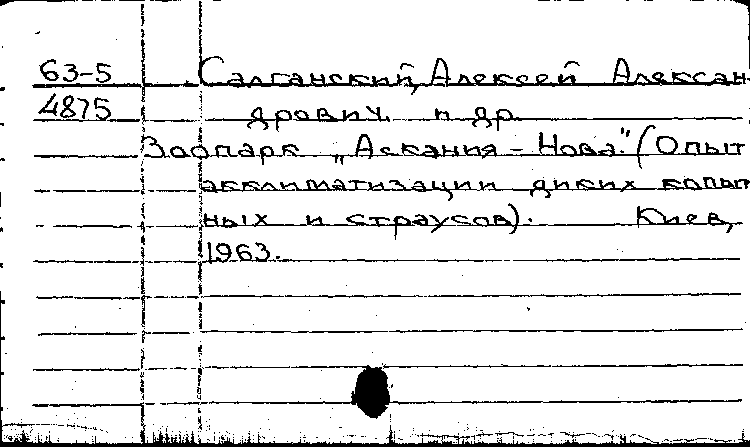 63-5 Салганский, Алексей Алексан-
4875 дрович. и др.
Зоопарк „Аскания-Нова." (Опыт
акклиматизации диких копыт
ных и страусов). Киев,
1963.